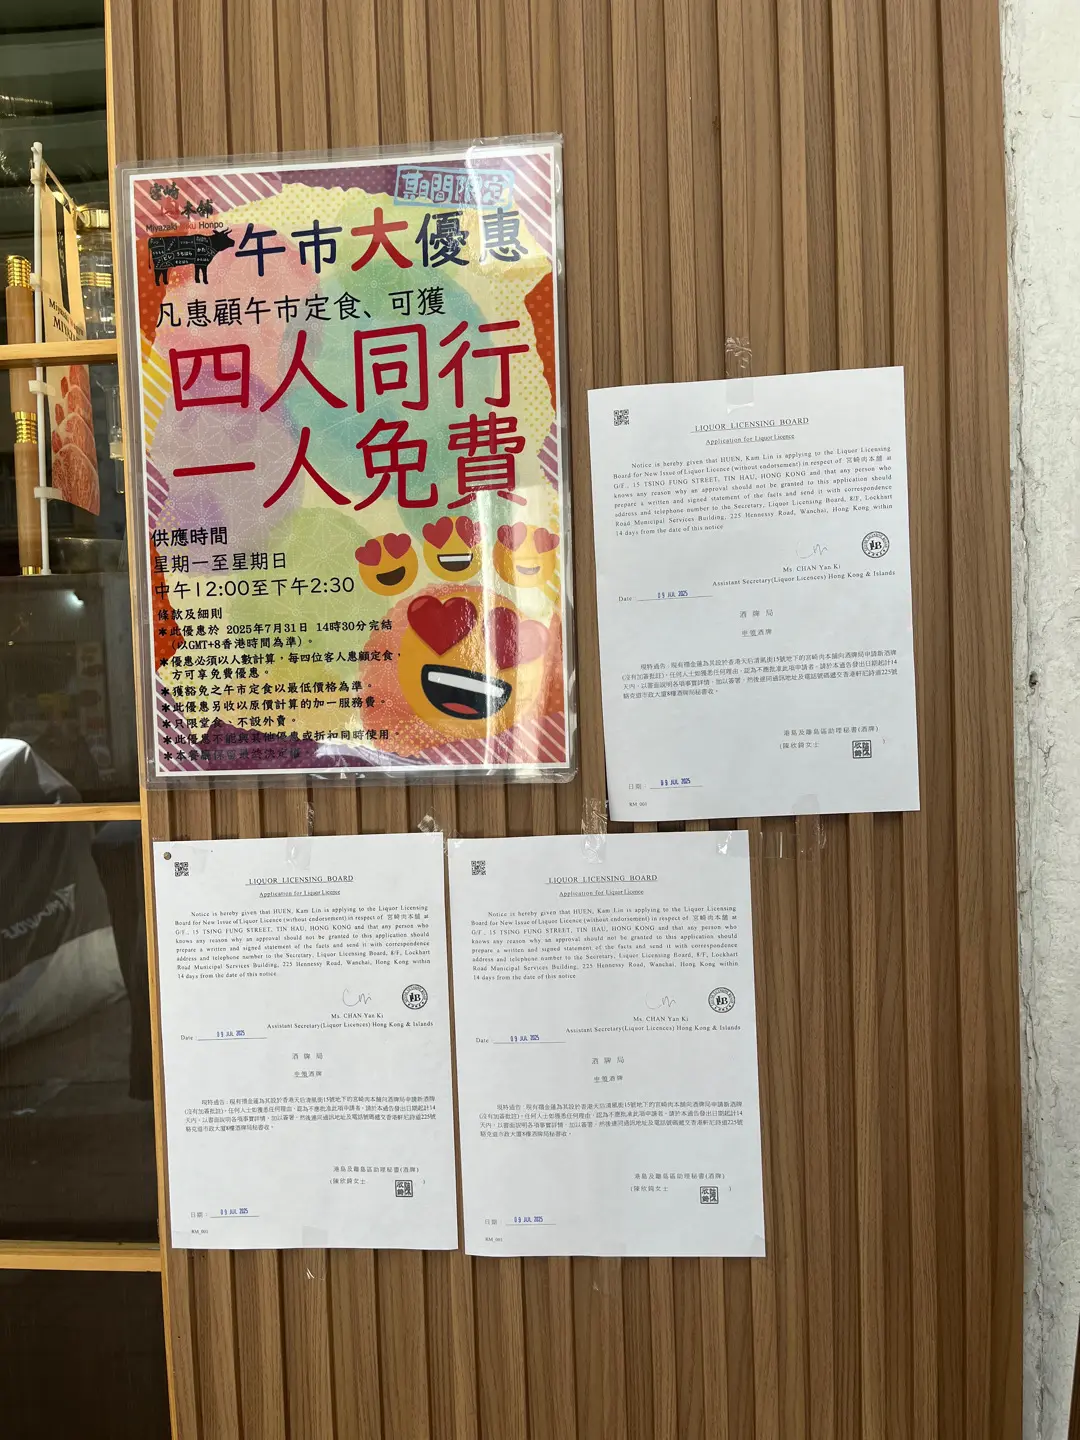 宮崎
本舗
Miyazaki Niku Honpo
期間限定
午市大優惠
凡惠顧午市定食、可獲
四人同行
一人免費
供應時間
星期一至星期日
中午12:00至下午2:30
條款及細則
*此優惠於 2025年7月31日 14時30分完結
(以GMT+8香港時間為準)。
*優惠必須以人數計算,每四位客人惠顧定食,
方可享免費優惠。
*獲豁免之午市定食以最低價格為準。
*此優惠另收以原價計算的加一服務費。
*只限堂食、不設外賣。
*此優惠不能與其他優惠或折扣同時使用。
*本餐廳保留最終決定權。
LIQUOR LICENSING BOARD
Application for Liquor Licence
Notice is hereby given that HUEN, Kam Lin is applying to the Liquor Licensing
Board for New Issue of Liquor Licence (without endorsement) in respect of 宮崎肉本舖 at
G/F., 15 TSING FUNG STREET, TIN HAU, HONG KONG and that any person who
knows any reason why an approval should not be granted to this application should
prepare a written and signed statement of the facts and send it with correspondence
address and telephone number to the Secretary, Liquor Licensing Board, 8/F, Lockhart
Road Municipal Services Building, 225 Hennessy Road, Wanchai, Hong Kong within
14 days from the date of this notice
Ms. CHAN Yan Ki
Assistant Secretary(Liquor Licences) Hong Kong & Islands
Date : 09 JUL 2025
酒牌局
酒牌
現特通告:現有禤金蓮為其設於香港天后清風街15號地下的宮崎肉本舖向酒牌局申請新酒牌
(沒有加簽批註)。任何人士如獲悉任何理由,認為不應批准此項申請者,請於本通告發出日期起計14
天內,以書面說明各項事實詳情,加以簽署,然後連同通訊地址及電話號碼遞交香港軒尼詩道225號
駱克道市政大廈8樓酒牌局秘書收。
港島及離島區助理秘書(酒牌)
(陳欣錡女士 )
日期: 09 JUL 2025
RM_001
LIQUOR LICENSING BOARD
Application for Liquor Licence
Notice is hereby given that HUEN, Kam Lin is applying to the Liquor Licensing
Board for New Issue of Liquor Licence (without endorsement) in respect of 宮崎肉本舖 at
G/F., 15 TSING FUNG STREET, TIN HAU, HONG KONG and that any person who
knows any reason why an approval should not be granted to this application should
prepare a written and signed statement of the facts and send it with correspondence
address and telephone number to the Secretary, Liquor Licensing Board, 8/F, Lockhart
Road Municipal Services Building, 225 Hennessy Road, Wanchai, Hong Kong within
14 days from the date of this notice
Ms. CHAN Yan Ki
Assistant Secretary(Liquor Licences) Hong Kong & Islands
Date : 09 JUL 2025
酒牌局
酒牌
現特通告:現有禤金蓮為其設於香港天后清風街15號地下的宮崎肉本舖向酒牌局申請新酒牌
(沒有加簽批註)。任何人士如獲悉任何理由,認為不應批准此項申請者,請於本通告發出日期起計14
天內,以書面說明各項事實詳情,加以簽署,然後連同通訊地址及電話號碼遞交香港軒尼詩道225號
駱克道市政大廈8樓酒牌局秘書收。
港島及離島區助理秘書(酒牌)
(陳欣錡女士 )
日期: 09 JUL 2025
RM_001
LIQUOR LICENSING BOARD
Application for Liquor Licence
Notice is hereby given that HUEN, Kam Lin is applying to the Liquor Licensing
Board for New Issue of Liquor Licence (without endorsement) in respect of 宮崎肉本舖 at
G/F., 15 TSING FUNG STREET, TIN HAU, HONG KONG and that any person who
knows any reason why an approval should not be granted to this application should
prepare a written and signed statement of the facts and send it with correspondence
address and telephone number to the Secretary, Liquor Licensing Board, 8/F, Lockhart
Road Municipal Services Building, 225 Hennessy Road, Wanchai, Hong Kong within
14 days from the date of this notice
Ms. CHAN Yan Ki
Assistant Secretary(Liquor Licences) Hong Kong & Islands
Date : 09 JUL 2025
酒牌局
酒牌
現特通告:現有禤金蓮為其設於香港天后清風街15號地下的宮崎肉本舖向酒牌局申請新酒牌
(沒有加簽批註)。任何人士如獲悉任何理由,認為不應批准此項申請者,請於本通告發出日期起計14
天內,以書面說明各項事實詳情,加以簽署,然後連同通訊地址及電話號碼遞交香港軒尼詩道225號
駱克道市政大廈8樓酒牌局秘書收。
港島及離島區助理秘書(酒牌)
(陳欣錡女士 )
日期: 09 JUL 2025
RM_001